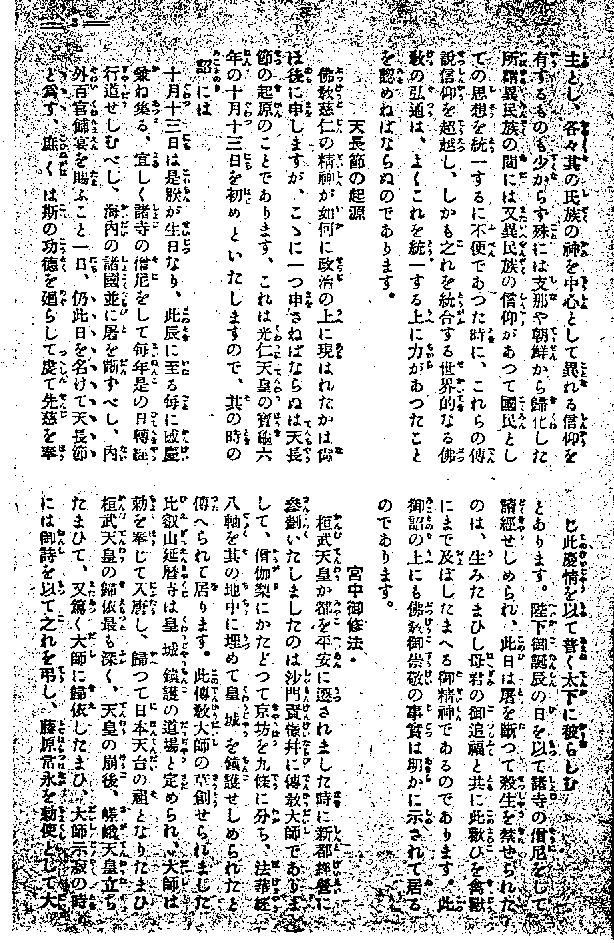 主とし、各々其の氏族の神を中心として異れる信仰を
有するものも少からず殊には支那や朝鮮から歸化した
所謂異民族の間には又異民族の信仰があつて國民とし
ての思想を統一するに不便であつた時に、これらの傳
說信仰を超越し、しかも之れを統合する世界的なる佛
敎の弘通は、よくこれを統一する上に力があつたこと
を認めねばならぬのであります。
天長節の起源
佛敎慈仁の精神が如何に政治の上に現はれたかは尙
ほ後に申しますが、こゝに一つ申さねばならぬは天長
節の起原のことであります、これは光仁天皇の寶龜六
年の十月十三日を初めといたしますので、其の時の
詔には
十月十三日は是朕が生日なり、此辰に至る每に感慶
兼ね集る、宜しく諸寺の僧尼をして每年是の日轉經
行道せしむべし、海內の諸國並に屠を斷ずべし、內
外百官餔宴を賜ふこと一日、仍此日を名けて天長節
と爲す、庶くは斯の功德を廻らして虔て先慈を奉
じ此慶情を以て普く天下に被らしむ
とあります。陛下御誕辰の日を以て諸寺の僧尼をして
誦經せしめられ、此日は屠を斷つて殺生を禁ぜられた
のは、生みたまひし母君の御追福と共に此歡びを禽獸
にまで及ぼしたまへる御精神であるのであります。此
御詔の上にも佛敎御崇敬の事實は明かに示されて居る
のであります。
宮中御修法
桓武天皇が都を平安に遷されました時に新都經營に
參劃いたしましたのは沙門賢憬幷に傳敎大師でありま
して、僧伽梨にかたどつて京坊を九條に分ち、法華經
八軸を其の地中に埋めて皇城を鎭護せしめられたと
傳へられて居ります。此傳敎大師の草創せられました
比叡山延曆寺は皇城鎭護の道場と定められ、大師は
勅を奉じて入唐し、歸つて日本天台の祖となりたまひ
桓武天皇の歸依最も深く、天皇の崩後、嵯峨天皇立ち
たまひて、又篤く大師に歸依したまひ、大師示寂の時
には御詩を以て之れを弔し、藤原常永を勅使として大